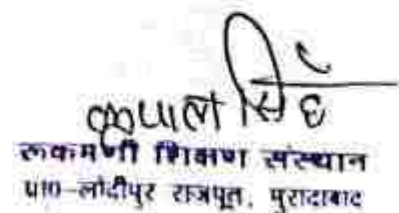 कृपाल सिंह
रूकमणी शिक्षण संस्थान
ग्रा०-लोदीपुर राजपूत, मुरादाबाद